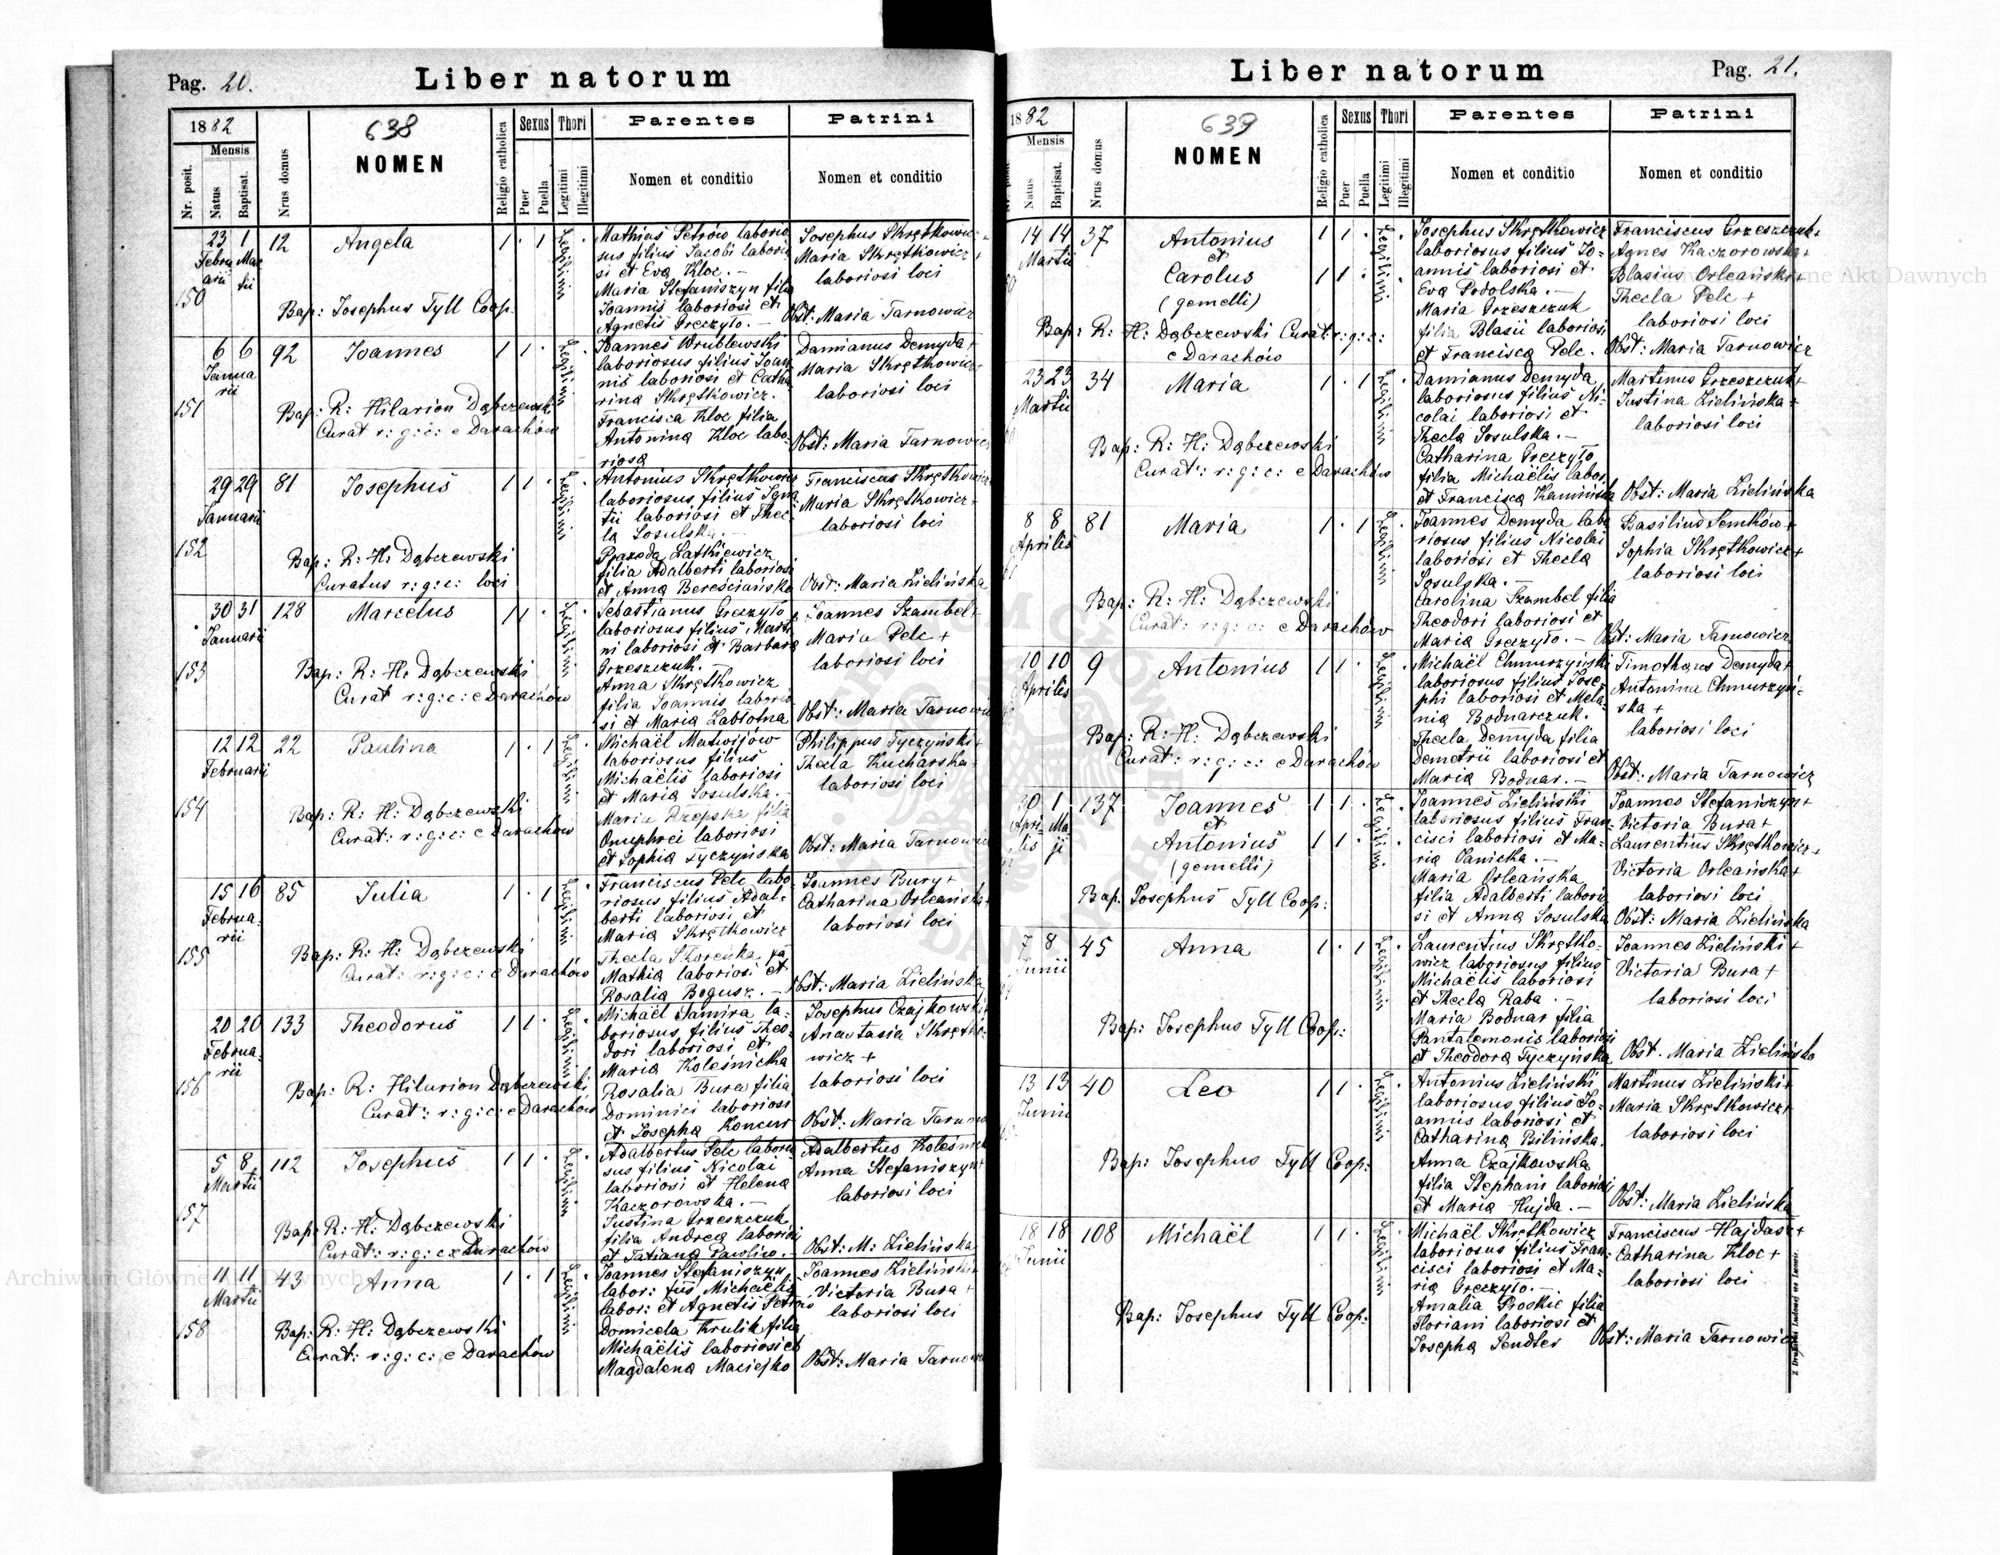 Pag. 20.
Liber natorum
1882
638
NOMEN
Mensis
Nr. posit.
Natus
Baptisat.
Nrus domus
Religio catholica
Sexus
Puer
Puella
Thori
Legitimi
Illegitimi
Parentes
Nomen et conditio
Patrini
Nomen et conditio
150
23 1
Februarii Martii
12
Angela
1 . 1
Legitimi
Bap: Josephus Tyll Coop.
Mathias Petrów laborio
sus filius Jacobi laborio
si et Eva Kloc. —
Maria Stefaniszyn filia
Joannis laboriosi et
Agnetis Greczyło. —
Josephus Skrętkowicz
Maria Skrętkowicz +
laboriosi loci
Obst: Maria Tarnowicz
151
6 6
Januarii
92
Joannes
1 1 .
Legitimi
Bap: R: Hilarion Dąbczewski
Curat r: g: c: e Darachów
Joannes Wrublewski
laboriosus filius Joan
nis laboriosi et Catha
rina Skrętkowicz.
Francisca Kloc filia
Antonina Kloc labo-
riosa
Damianus Demyda +
Maria Skrętkowicz +
laboriosi loci
Obst: Maria Tarnowicz
152
29 29
Januarii
81
Josephus
1 1 .
Legitimi
Bap: R: H: Dąbczewski
Curatus r: g: c: loci
Antonius Skrętkowicz
laboriosus filius Igna
tii laboriosi et Thec-
la Sosulska. —
Paraxeda Latkiewicz
filia Adalberti laboriosi
et Anna Bereściańska
Franciscus Skrętkowicz
Maria Skrętkowicz +
laboriosi loci
Obst: Maria Zielińska
153
30 31
Januarii
128
Marcelus
1 1 .
Legitimi
Bap: R: H: Dąbczewski
Curat r: g: c: e Darachów
Sebastianus Greczyło
laboriosus filius Marti
ni laboriosi et Barbara
Grzeszczuk.
Anna Skrętkowicz
filia Joannis laborio
si et Maria Zabłotna
Joannes Szambel +
Maria Pelc +
laboriosi loci
Obst: Maria Tarnowicz
154
12 12
Februarii
22
Paulina
1 . 1
Legitimi
Bap: R: H: Dąbczewski
Curat: r: g: c: e Darachów
Michaël Matwijów
laboriosus filius
Michaëlis laboriosi
et Maria Sosulska. —
Maria Rzepska filia
Onuphrei laboriosi
et Sophia Tyczyńska
Philippus Tyczyński +
Thecla Kucharska +
laboriosi loci
Obst: Maria Tarnowicz
155
15 16
Februa-
rii
85
Julia
1 . 1
Legitimi
Bap: R: H: Dąbczewski
Curat: r: g: c: e Darachów
Franciscus Pelc labo-
riosus filius Adal-
berti laboriosi et
Maria Skrętkowicz
Thecla Skoreńka fa
Mathia laboriosi et
Rosalia Bogusz. —
Joannes Bury +
Catharina Orleańska +
laboriosi loci
Obst: Maria Zielińska
156
20 20
Februa-
rii
133
Theodorus
1 1 .
Legitimi
Bap: R: Hilarion Dąbczewski
Curat: r: g: c: e Darachów
Michaël Samira la-
boriosus filius Theo-
dori laboriosi et
Maria Koleśnicka
Rosalia Bura filia
Dominici laboriosi
et Josepha Koncur
Josephus Czajkowski +
Anastasia Skrętko-
wicz +
laboriosi loci
Obst: Maria Tarnow
157
5 8
Martii
112
Josephus
1 1 .
Legitimi
Bap: R: H: Dąbczewski
Curat: r: g: c: e Darachów
Adalbertus Pelc laborio
sus filius Nicolai
laboriosi et Helena
Kaczorowska. —
Justina Grzeszczuk
filia Andrea laboriosi
et Tatiana Pawliw. —
Adalbertus Koleśnick
Anna Stefaniszyn +
laboriosi loci
Obst: M: Zielińska
158
11 11
Martii
43
Anna
1 . 1
Legitimi
Bap: R: H: Dąbczewski
Curat: r: g: c: e Darachów
Joannes Stefaniszyn
labor: fius Michaëlis
labor: et Agnetis Petrów
Domicela Krulik filia
Michaëlis laboriosi et
Magdalena Maciejko
Joannes Zieliński
Victoria Bura +
laboriosi loci
Obst: Maria Tarnow
Pag. 21.
Liber natorum
1882
639
NOMEN
Mensis
Nr. posit
Natus
Baptisat.
Nrus domus
Religio catholica
Sexus
Puer
Puella
Thori
Legitimi
Illegitimi
Parentes
Nomen et conditio
Patrini
Nomen et conditio
14 14
Martii
37
Antonius
et
Carolus
(gemelli)
1 1 .
1 1 .
Legitimi
Bap: R: H: Dąbczewski Curat: r: g: c:
e Darachów
Josephus Skrętkowicz
laboriosus filius Jo-
annis laboriosi et
Eva Podolska. —
Maria Grzeszczuk
filia Blasii laboriosi
et Francisca Pelc.
Franciscus Grzeszczuk +
Agnes Kaczorowska +
Blasius Orleański +
Thecla Pelc +
laboriosi loci
Obst: Maria Tarnowicz
23 23
Martii
34
Maria
1 . 1
Legitimi
Bap: R: H: Dąbczewski
Curat: r: g: c: e Darachów
Damianus Demyda
laboriosus filius Ni-
colai laboriosi et
Thecla Sosulska. —
Catharina Greczyło
filia Michaëlis labor.
et Francisca Kamińska
Martinus Grzeszczuk +
Justina Zielińska +
laboriosi loci
Obst: Maria Zielińska
8 8
Aprilis
81
Maria
1 . 1
Legitimi
Bap: R: H: Dąbczewski
Curat: r: g: c: e Darachów
Joannes Demyda labo
riosus filius Nicolai
laboriosi et Thecla
Sosulska. —
Carolina Szambel filia
Theodori laboriosi et
Maria Greczyło. —
Basilius Semków +
Sophia Skrętkowicz +
laboriosi loci
Obst: Maria Tarnowicz
10 10
Aprilis
9
Antonius
1 1 .
Legitimi
Bap: R: H: Dąbczewski
Curat: r: g: c: e Darachów
Michaël Chmurzyński
laboriosus filius Jose-
phi laboriosi et Mela-
nia Bodnarczuk.
Thecla Demyda filia
Demetrii laboriosi et
Maria Bodnar. —
Timotheus Demyda +
Antonina Chmurzyń-
ska +
laboriosi loci
Obst: Maria Tarnowicz
30 1
Apri- Ma-
lis ji
137
Joannes
et
Antonius
(gemelli)
1 1 .
1 1 .
Legitimi
Bap: Josephus Tyll Coop:
Joannes Zieliński
laboriosus filius Fran-
cisci laboriosi et Ma-
ria Panicka. —
Maria Orleańska
filia Adalberti laborio
si et Anna Sosulska
Joannes Stefaniszyn +
Victoria Bura +
Laurentius Skrętkowicz +
Victoria Orleańska +
laboriosi loci
Obst: Maria Zielińska
7 8
Junii
45
Anna
1 . 1
Legitimi
Bap: Josephus Tyll Coop:
Laurentius Skrętko-
wicz laboriosus filius
Michaëlis laboriosi
et Thecla Raba. —
Maria Bodnar filia
Pantalemonis laboriosi
et Theodora Tyczyńska
Joannes Zieliński +
Victoria Bura +
laboriosi loci
Obst. Maria Zielińska
13 13
Junii
40
Leo
1 1 .
Legitimi
Bap: Josephus Tyll Coop:
Antonius Zieliński
laboriosus filius Jo-
annis laboriosi et
Catharina Bilińska.
Anna Czajkowska
filia Stephani laboriosi
et Maria Hujda. —
Martinus Zieliński +
Maria Skrętkowicz +
laboriosi loci
Obst: Maria Zielińska
18 18
Junii
108
Michaël
1 1 .
Legitimi
Bap: Josephus Tyll Coop:
Michaël Skrętkowicz
laboriosus filius Fran-
cisci laboriosi et Ma-
ria Greczyło. —
Amalia Proskie filia
Floriani laboriosi et
Josepha Sendler
Franciscus Hajdasz +
Catharina Kloc +
laboriosi loci
Obst: Maria Tarnowicz
Z Drukarni Ludowej we Lwowie.
Archiwum Główne Akt Dawnych
Archiwum Główne Akt Dawnych